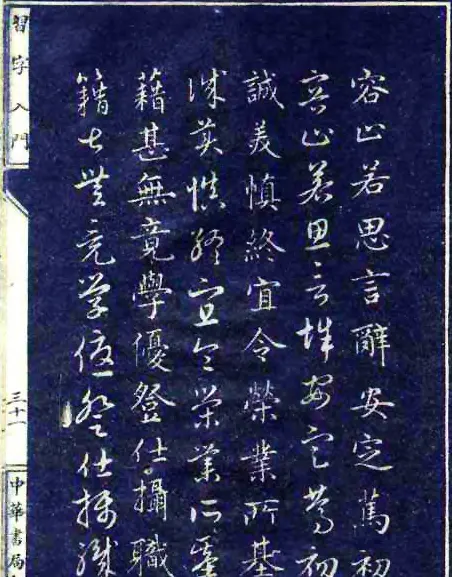 容止若思言辭安定篤初
容止若思言辭安定篤初
誠美慎終宜令榮業所基
誠美慎終宜令榮業所基
藉甚無竟學優登仕攝職
籍甚無竟學優登仕攝職
習字入門
三十一
中華書局